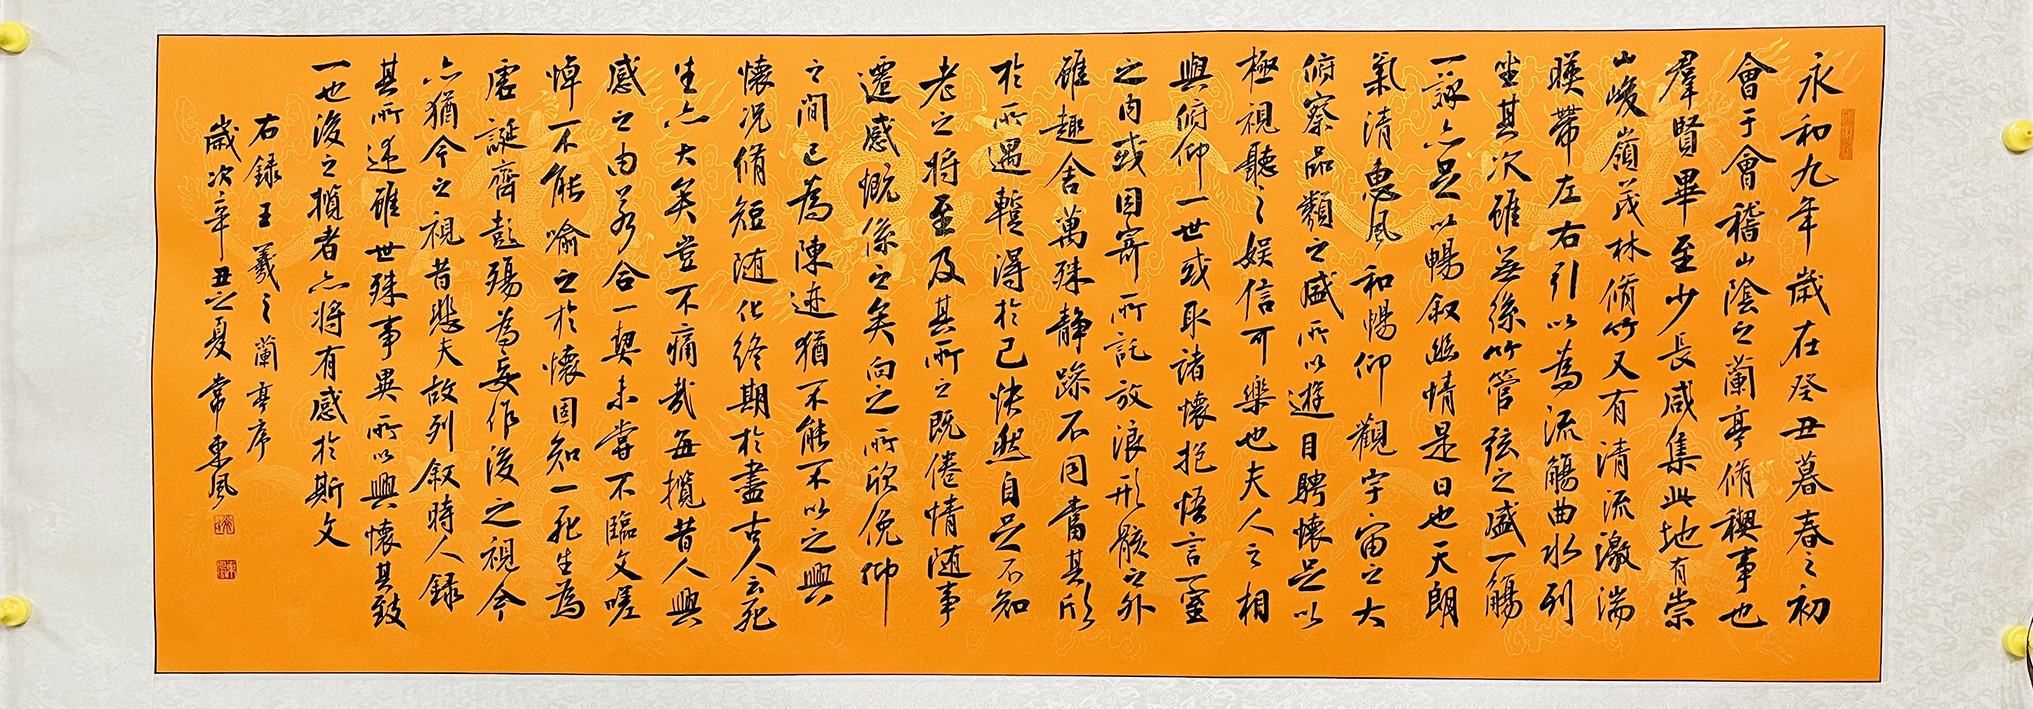 永和九年歲在癸丑暮春之初
會于會稽山陰之蘭亭脩稧事也
羣賢畢至少長咸集此地有崇
山峻嶺茂林脩竹又有清流激湍
暎帶左右引以為流觴曲水列
坐其次雖無絲竹管弦之盛一觴
一詠亦足以暢叙幽情是日也天朗
氣清惠風和暢仰觀宇宙之大
俯察品類之盛所以遊目騁懷足以
極視聽之娛信可樂也夫人之相
與俯仰一世或取諸懷抱悟言一室
之內或因寄所託放浪形骸之外
雖趣舍萬殊静躁不同當其欣
於所遇暫得於己快然自足不知
老之將至及其所之既倦情随事
遷感慨係之矣向之所欣俛仰
之間已為陳迹猶不能不以之興
懷况脩短随化終期於盡古人云死
生亦大矣豈不痛哉每攬昔人興
感之由若合一契未嘗不臨文嗟
悼不能喻之於懷固知一死生為
虛誕齊彭殤為妄作後之視今
亦猶今之視昔悲夫故列叙時人錄
其所述雖世殊事異所以興懷其致
一也後之攬者亦將有感於斯文
右録王羲之蘭亭序
歲次辛丑之夏常東風